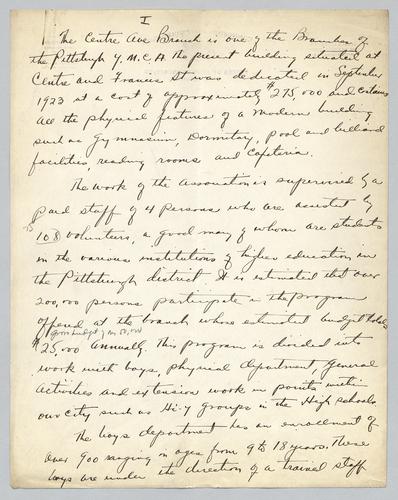 I
The Centre Ave Branch is one of the Branches of
the Pittsburgh Y.M.C.A. The present building situated at
Centre and Francis St was dedicated in September
1923 at a cost of approximately $275,000 and contains
all the physical features of a modern building
such as Gymnasium, Dormitory, pool and billiard
facilities, reading rooms and Cafeteria.
The work of the Association is supervised by a
paid staff of 4 persons who are assisted by
108 volunteers, a good many of whom are students
in the various institutions of higher education in
the Pittsburgh district. It is estimated that over
200,000 persons participate in the program
offered at the branch whose estimated budget totals
Gross budget
$25,000 annually. This program is divided into
work with boys, physical department, General
Activities and extension work in points within
our city such as Hi-Y groups in the High schools.
The boys department has an enrollment of
over 900 ranging in ages from 9 to 18 years. These
boys are under the direction of a trained staff